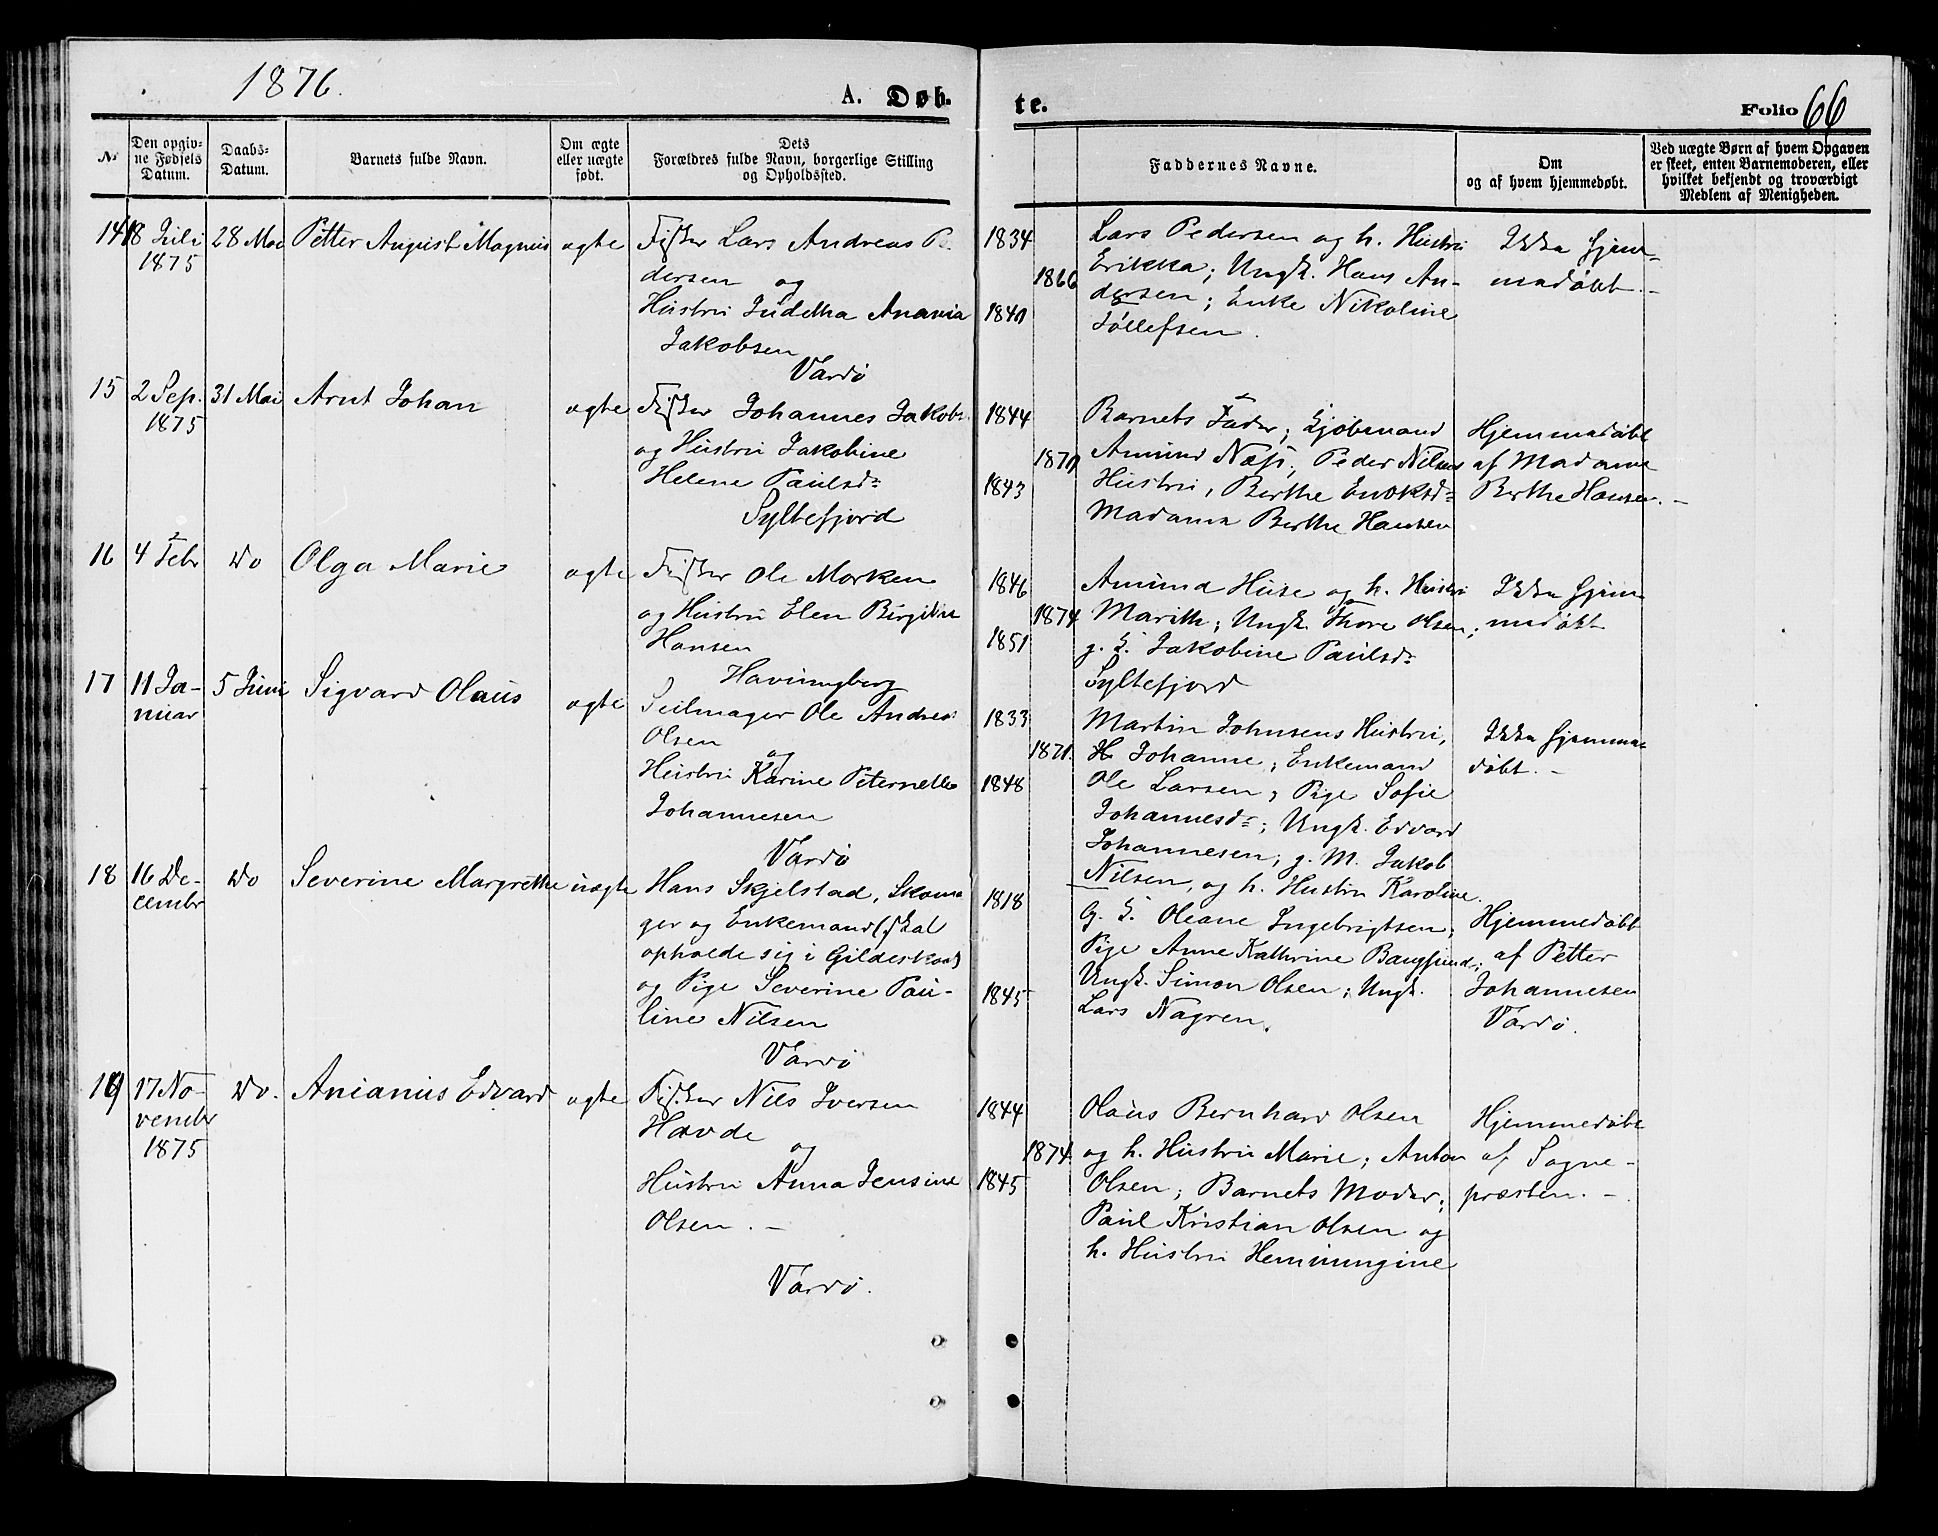 1876.
A. Døb.
te.
Folio 66
Nr
Den opgiv-
ne Fødsels
Datum.
Daabs-
Datum.
Barnets fulde Navn.
Om ægte
eller uægte
født.
Dets
Forældres fulde Navn, borgerlige Stilling
og Opholdssted.
Faddernes Navne.
Om
og af hvem hjemmedøbt.
Ved uægte Børn af hvem Opgaven
er skeet, enten Barnemoderen, eller
hvilket bekjendt og troværdigt
Medlem af Menigheden.
14 18 Juli 28 Mai Petter August Magnus ægte Fisker Lars Andreas Pe
1875
dersen og
Hustru Juditha Anania
Jakobsen
Vardö
1834
1866
1840
Lars Pedersen og h. Hustru
Erikka; Ungk. Hans An-
dersen; Enke Nikoline
Töllefsen.
Ikke hjem-
medöbt.-
15 2 Sep. 31 Mai Arnt Johan ægte Fisker Johannes Jakobs.
1875
og Hustru Jakobine
Helene Paulsdr
Syltefjord
1844
1870
1843
Barnets Fader; Kjöbmand
Amund Næss; Peder Nilsens
Hustru, Berthe Eriksdr
Madame Berthe Hansen
Hjemmedöbt
af Madame
Berthe Hansen.-
16 4 Febr do Olga Marie ægte Fisker Ole Morken
og Hustru Elen Birgitte
Hansen
Havningberg
1846
1874
1851
Amund Huse og h. Hustru
Marith; Ungk. Thore Olsen;
g. K. Jakobine Paulsdr
Syltefjord
Ikke hjem
medöbt
17 11 Ja- 5 Juni Sigvard Olaus ægte Seilmager Ole Andreas
nuar
Olsen
og
Hustru Karine Peternelle
Johannesen
Vardö
1833
1871.
1848
Martin Johnsens Hustru,
Johanne; Enkemand
Ole Larsen; Pige Sofie
Johannesdr; Ungk. Edvard
Johannesen; g. M. Jakob
Nilsen, og h. Hustru Karoline.
Ikke hjemme-
döbt.-
18 16 De- do Severine Margrethe uægte Hans Skjelstad, Skoma
cembr
ger og Enkemand (skal
opholde sig i Gildeskaal)
og Pige Severine Pau-
line Nilsen
Vardö
1818
1845
G. K. Oleane Ingebrigtsen;
Pige Anne Kathrine Bangsund;
Ungk. Simon Olsen; Ungk.
Lars Nagren.
Hjemmedöbt
af Petter
Johannesen
Vardö.
19 17 No- do. Ananius Edvard ægte Fisker Nils Iversen
vembr
1875
Havde
og
Hustru Anna Jensine
Olsen.-
Vardö.
1844
1874
1845
Olaus Bernhard Olsen
og h. Hustru Marie; Anton
Olsen; Barnets Moder;
Paul Kristian Olsen og
h. Hustru Hemmingine
Hjemmedöbt
af Sogne-
præsten.-